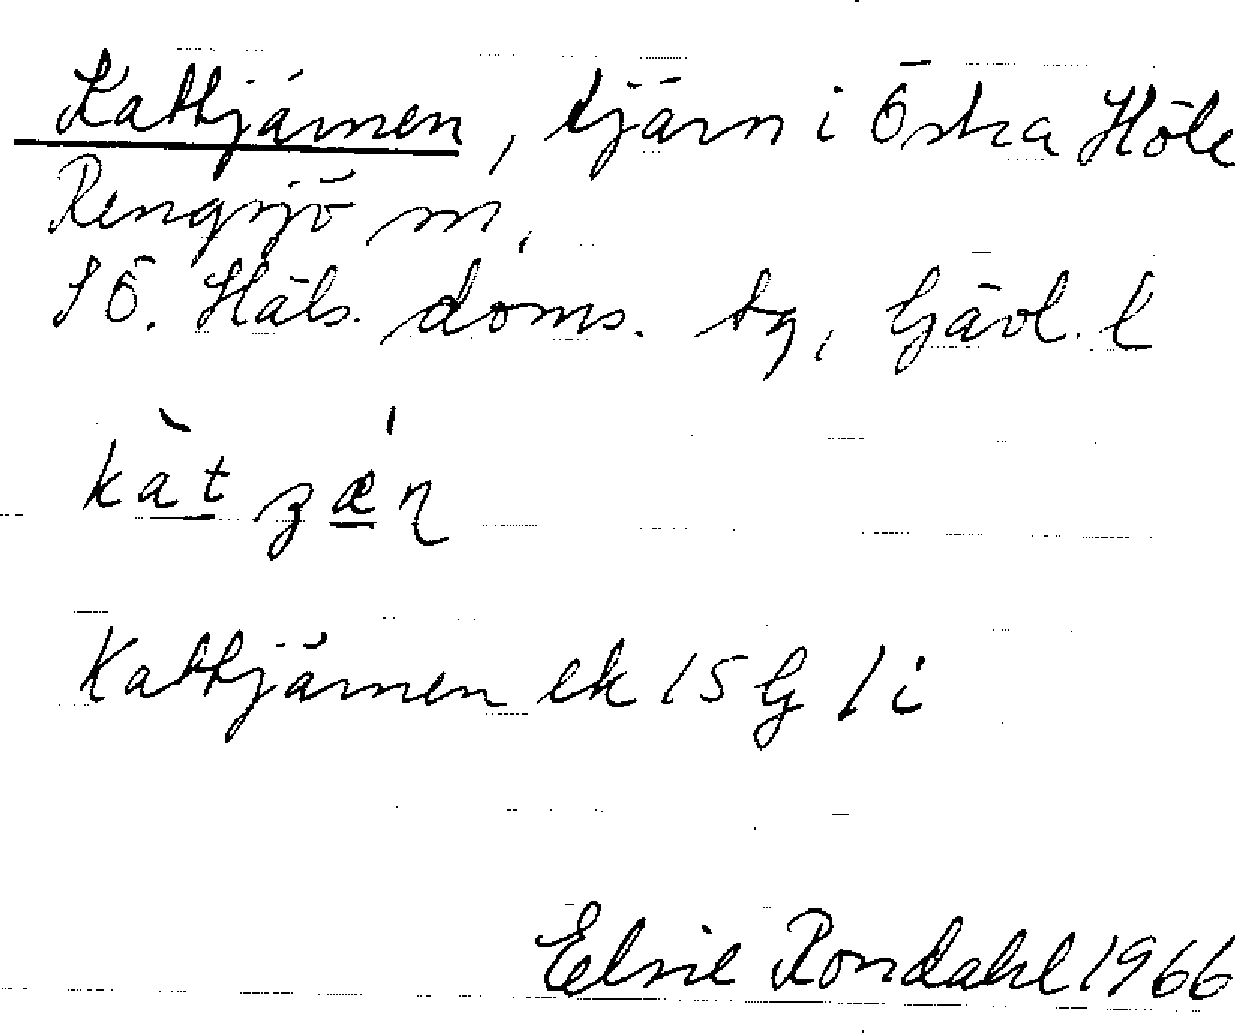 Kattjärnen, tjärn i Östra Höle
Rengsjö sn,
SÖ. Häls. doms. tg, Gävl. l
kàt ʒǽɳ
Kattjärnen ek 15 G 1 i
Elsie Rondahl 1966